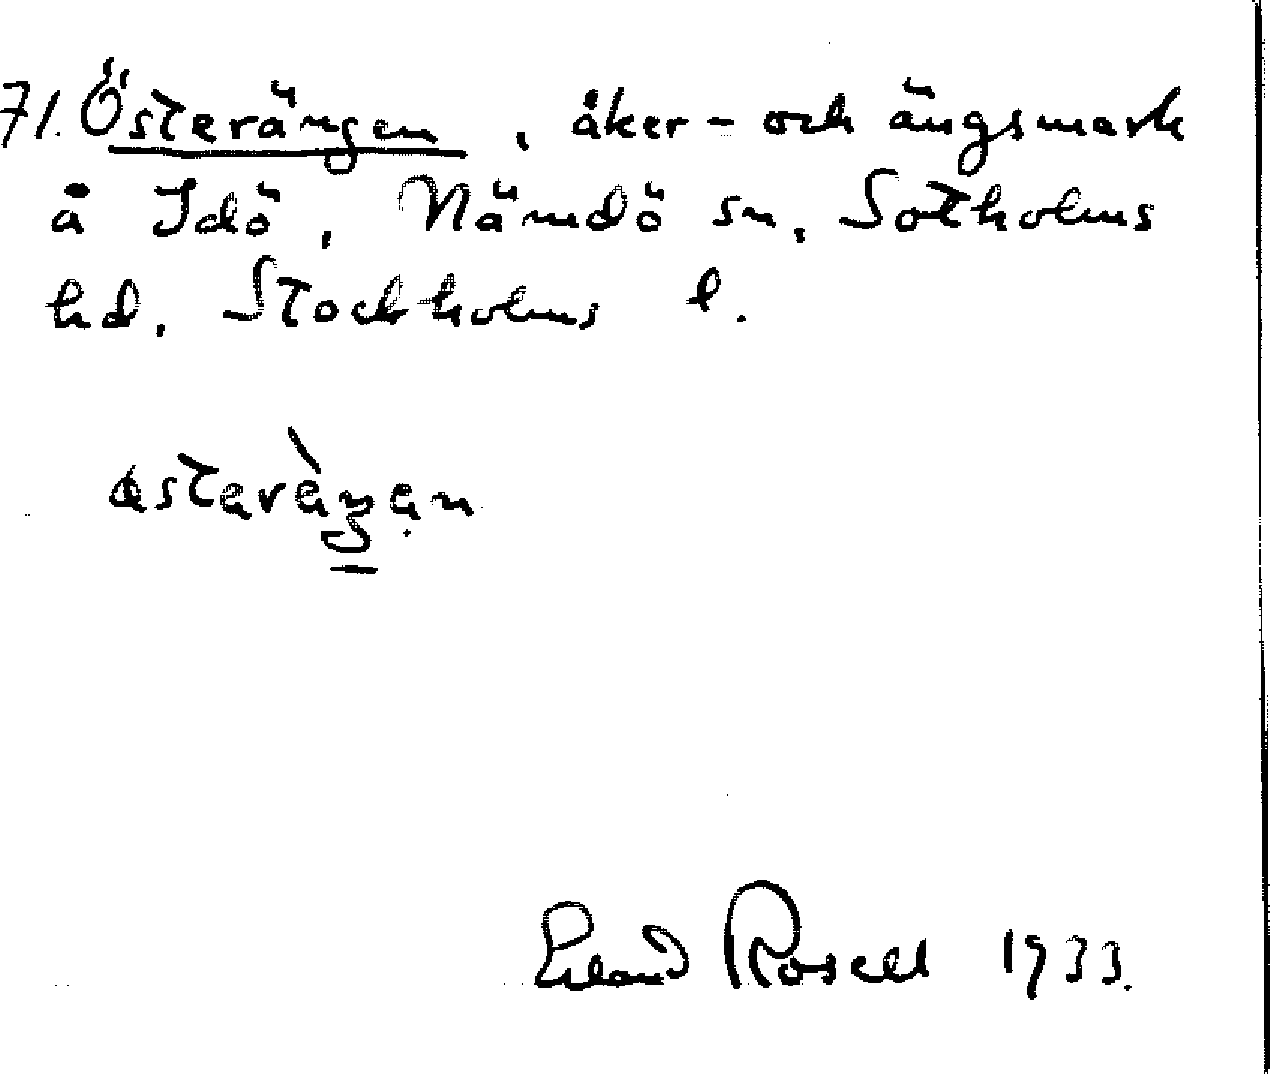 71. Österängen, åker- och ängsmark
å Idö, Nämdö sn, Sotholms
hd, Stockholms l.
Erland Rosell 1933.